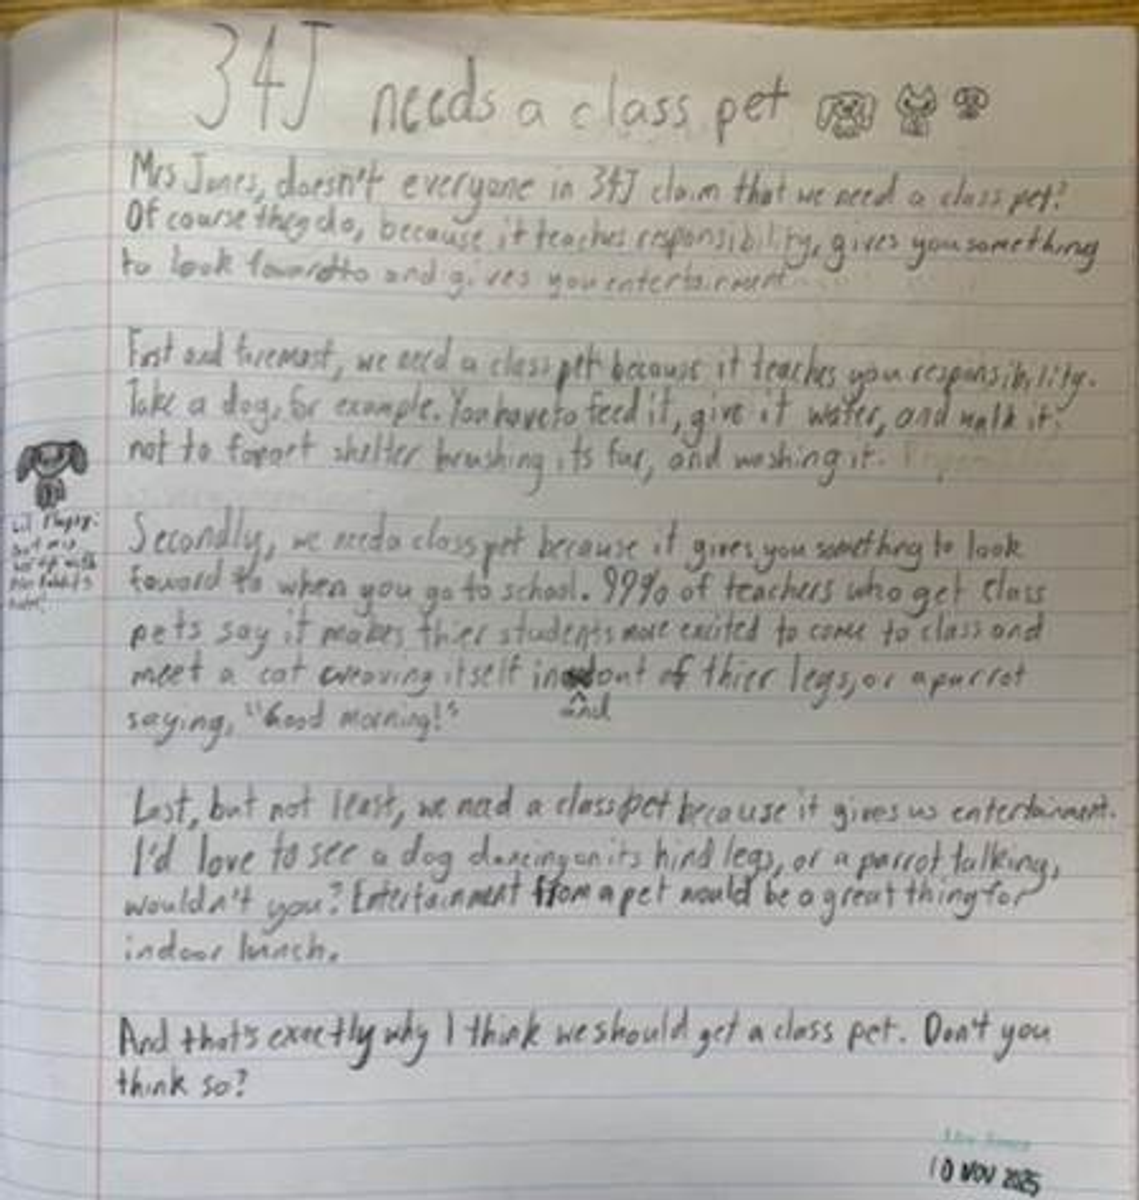 34J needs a class pet
Mrs Jones, doesn't everyone in 34J claim that we need a class pet?
Of course they do, because it teaches responsibility, gives you something
to look foward to and gives you entertainment
First and foremost, we need a class pet because it teaches you responsibility.
Take a dog, for example. You have to feed it, give it water, and walk it.
not to forget shelter brushing its fur, and washing it.
Secondly, we need a class pet because it gives you something to look
foward to when you go to school. 99% of teachers who get class
pets say it makes thier students more excited to come to class and
meet a cat weaving itself in and out of thier legs, or a parrot
saying, "Good morning!"
Last, but not least, we need a class pet because it gives us entertainment.
I'd love to see a dog dancing on its hind legs, or a parrot talking,
wouldn't you? Entertainment from a pet would be a great thing for
indoor lunch.
And that's exactly why I think we should get a class pet. Don't you
think so?
10 NOV 2025